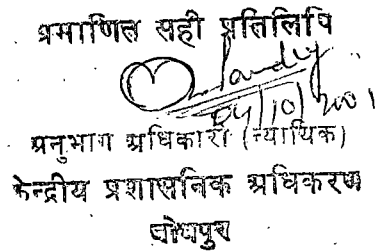 प्रमाणित सही प्रतिलिपि
04/10/2001
अनुभाग अधिकारी (न्यायिक)
केन्द्रीय प्रशासनिक अधिकरण
जोधपुर